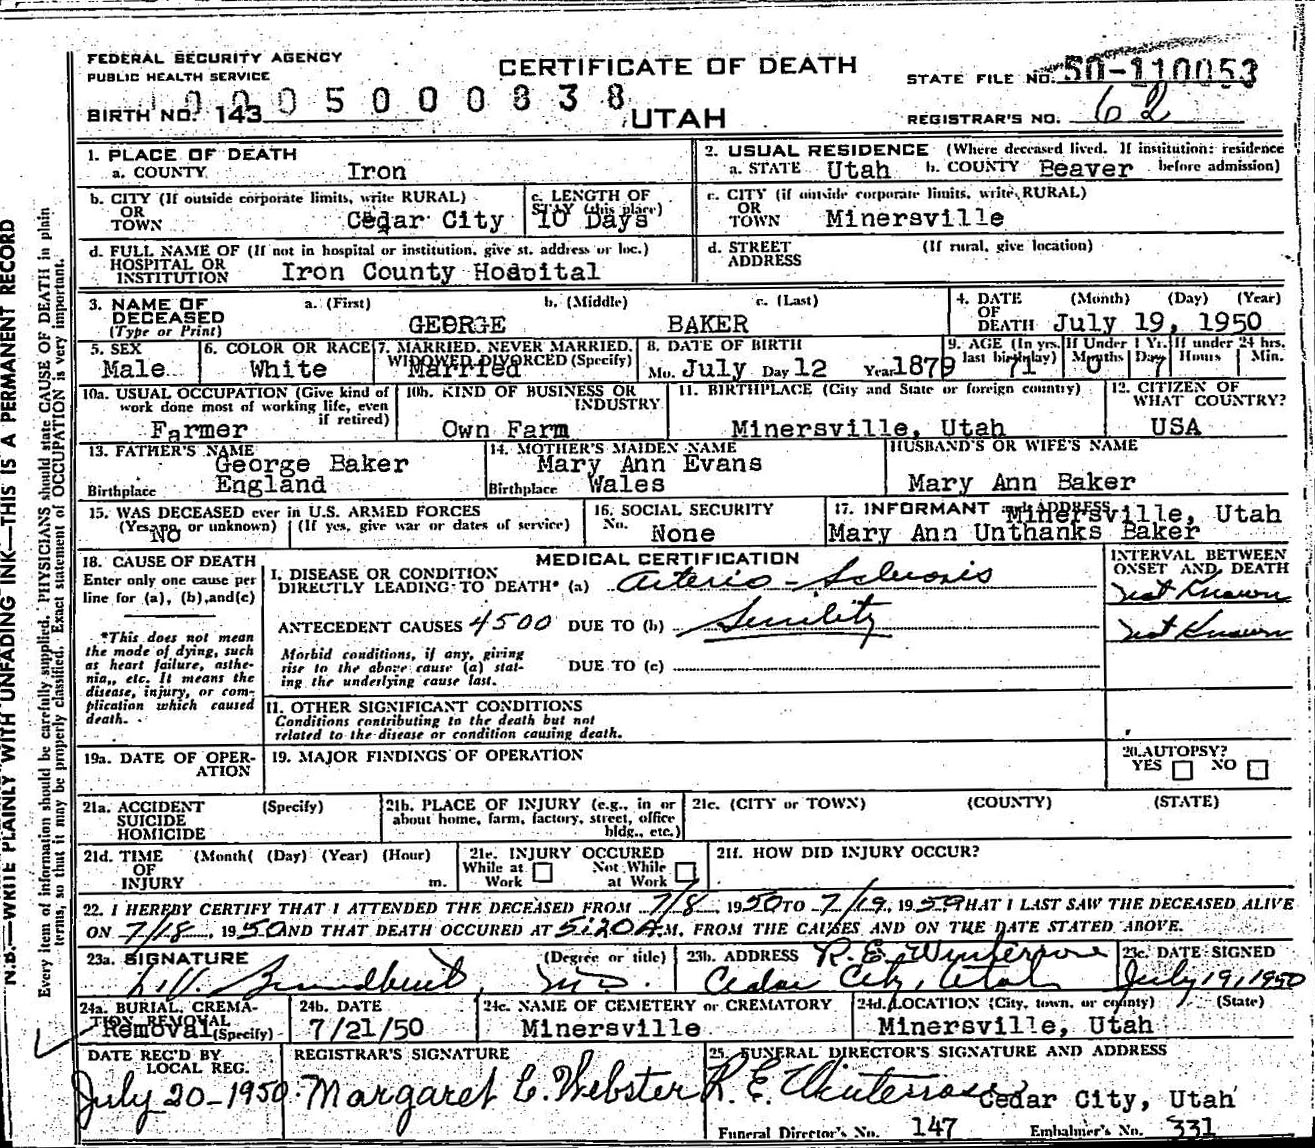 FEDERAL SECURITY AGENCY
PUBLIC HEALTH SERVICE
CERTIFICATE OF DEATH
STATE FILE NO. 50-110053
0005000838
BIRTH NO. 143
UTAH
REGISTRAR'S NO. 62
1. PLACE OF DEATH
a. COUNTY Iron
2. USUAL RESIDENCE (Where deceased lived. If institution: residence before admission)
a. STATE Utah b. COUNTY Beaver
b. CITY (If outside corporate limits, write RURAL) OR TOWN Cedar City
c. LENGTH OF STAY (this place) 10 Days
c. CITY (if outside corporate limits, write RURAL) OR TOWN Minersville
d. FULL NAME OF (If not in hospital or institution, give st. address or loc.) HOSPITAL OR INSTITUTION Iron County Hospital
d. STREET ADDRESS (If rural, give location)
3. NAME OF DECEASED (Type or Print)
a. (First) b. (Middle) c. (Last)
GEORGE BAKER
4. DATE OF DEATH (Month) (Day) (Year)
July 19, 1950
5. SEX Male
6. COLOR OR RACE White
7. MARRIED, NEVER MARRIED, WIDOWED DIVORCED (Specify) Married
8. DATE OF BIRTH
Mo. July Day 12 Year 1879
9. AGE (In yrs. last birthday) 71
If Under 1 Yr. Months 0 Days 7
If under 24 hrs. Hours Min.
10a. USUAL OCCUPATION (Give kind of work done most of working life, even if retired) Farmer
10b. KIND OF BUSINESS OR INDUSTRY Own Farm
11. BIRTHPLACE (City and State or foreign country) Minersville, Utah
12. CITIZEN OF WHAT COUNTRY? USA
13. FATHER'S NAME George Baker
Birthplace England
14. MOTHER'S MAIDEN NAME Mary Ann Evans
Birthplace Wales
HUSBAND'S OR WIFE'S NAME
Mary Ann Baker
15. WAS DECEASED ever in U.S. ARMED FORCES
(Yes, no or unknown) (If yes, give war or dates of service)
No
16. SOCIAL SECURITY No. None
17. INFORMANT and ADDRESS Minersville, Utah
Mary Ann Unthanks Baker
18. CAUSE OF DEATH
Enter only one cause per line for (a), (b), and (c)
*This does not mean the mode of dying, such as heart failure, asthenia, etc. It means the disease, injury, or complication which caused death.
MEDICAL CERTIFICATION
INTERVAL BETWEEN ONSET AND DEATH
I. DISEASE OR CONDITION DIRECTLY LEADING TO DEATH* (a) Arterio-Sclerosis Not Known
ANTECEDENT CAUSES 4500 DUE TO (b) Senility Not Known
Morbid conditions, if any, giving rise to the above cause (a) stating the underlying cause last.
DUE TO (c)
II. OTHER SIGNIFICANT CONDITIONS
Conditions contributing to the death but not related to the disease or condition causing death.
19a. DATE OF OPERATION
19. MAJOR FINDINGS OF OPERATION
20. AUTOPSY?
YES NO
21a. ACCIDENT SUICIDE HOMICIDE (Specify)
21b. PLACE OF INJURY (e.g., in or about home, farm, factory, street, office bldg., etc.)
21c. (CITY or TOWN) (COUNTY) (STATE)
21d. TIME OF INJURY (Month( (Day) (Year) (Hour) m.
21e. INJURY OCCURED
While at Work Not While at Work
21f. HOW DID INJURY OCCUR?
22. I HEREBY CERTIFY THAT I ATTENDED THE DECEASED FROM 7/8, 1950 TO 7/19, 1950 THAT I LAST SAW THE DECEASED ALIVE
ON 7/18, 1950 AND THAT DEATH OCCURED AT 5:20 A.M, FROM THE CAUSES AND ON THE DATE STATED ABOVE.
23a. SIGNATURE (Degree or title) M.D.
23b. ADDRESS R. E. Winterrose
Cedar City, Utah
23c. DATE SIGNED July 19, 1950
24a. BURIAL, CREMATION REMOVAL (Specify) Removal
24b. DATE 7/21/50
24c. NAME OF CEMETERY or CREMATORY Minersville
24d. LOCATION (City, town, or county) (State) Minersville, Utah
DATE REC'D BY LOCAL REG. July 20-1950
REGISTRAR'S SIGNATURE Margaret C. Webster
25. FUNERAL DIRECTOR'S SIGNATURE AND ADDRESS
R. E. Winterrose Cedar City, Utah
Funeral Director's No. 147 Embalmer's No. 331
N.B.—WRITE PLAINLY WITH UNFADING INK—THIS IS A PERMANENT RECORD
Every item of information should be carefully supplied. PHYSICIANS should state CAUSE OF DEATH in plain
terms, so that it may be properly classified. Exact statement of OCCUPATION is very important.